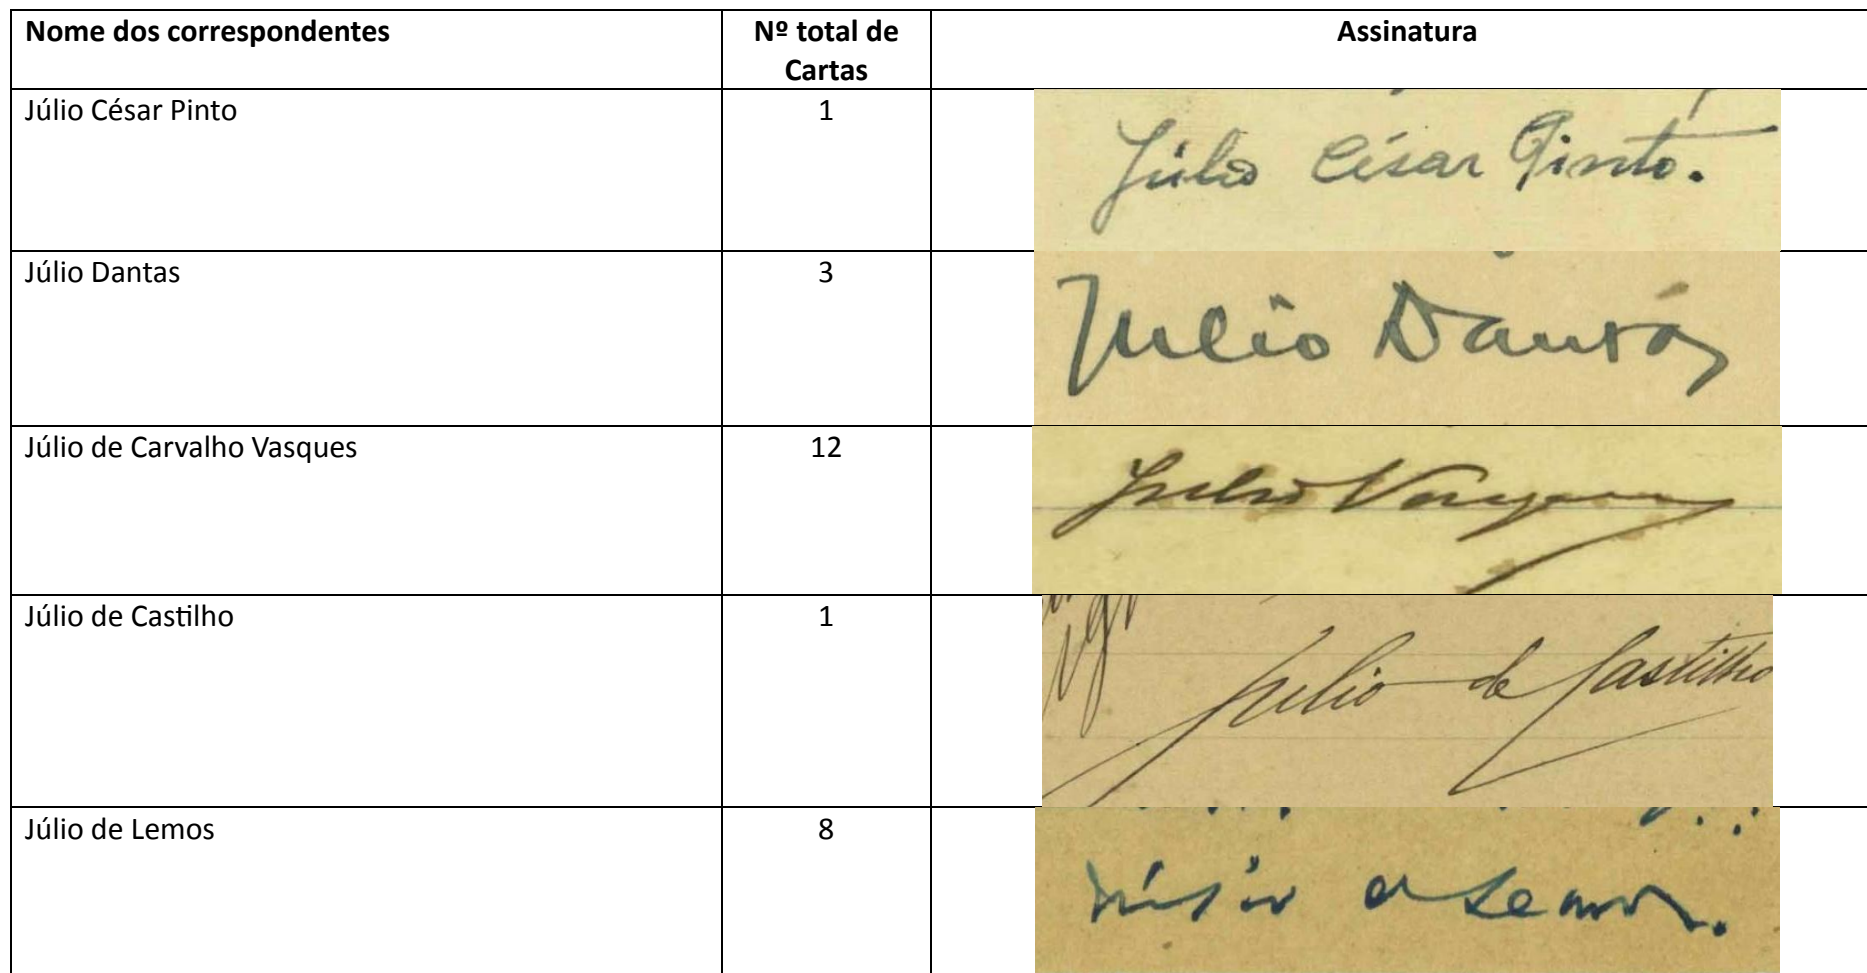 Nome dos correspondentes
Nº total de
Cartas
Assinatura
Júlio César Pinto
1
Júlio César Pinto.
Júlio Dantas
3
Julio Dantas
Júlio de Carvalho Vasques
12
Julio Vasques
Júlio de Castilho
1
Julio de Castilho
Júlio de Lemos
8
Júlio de Lemos.